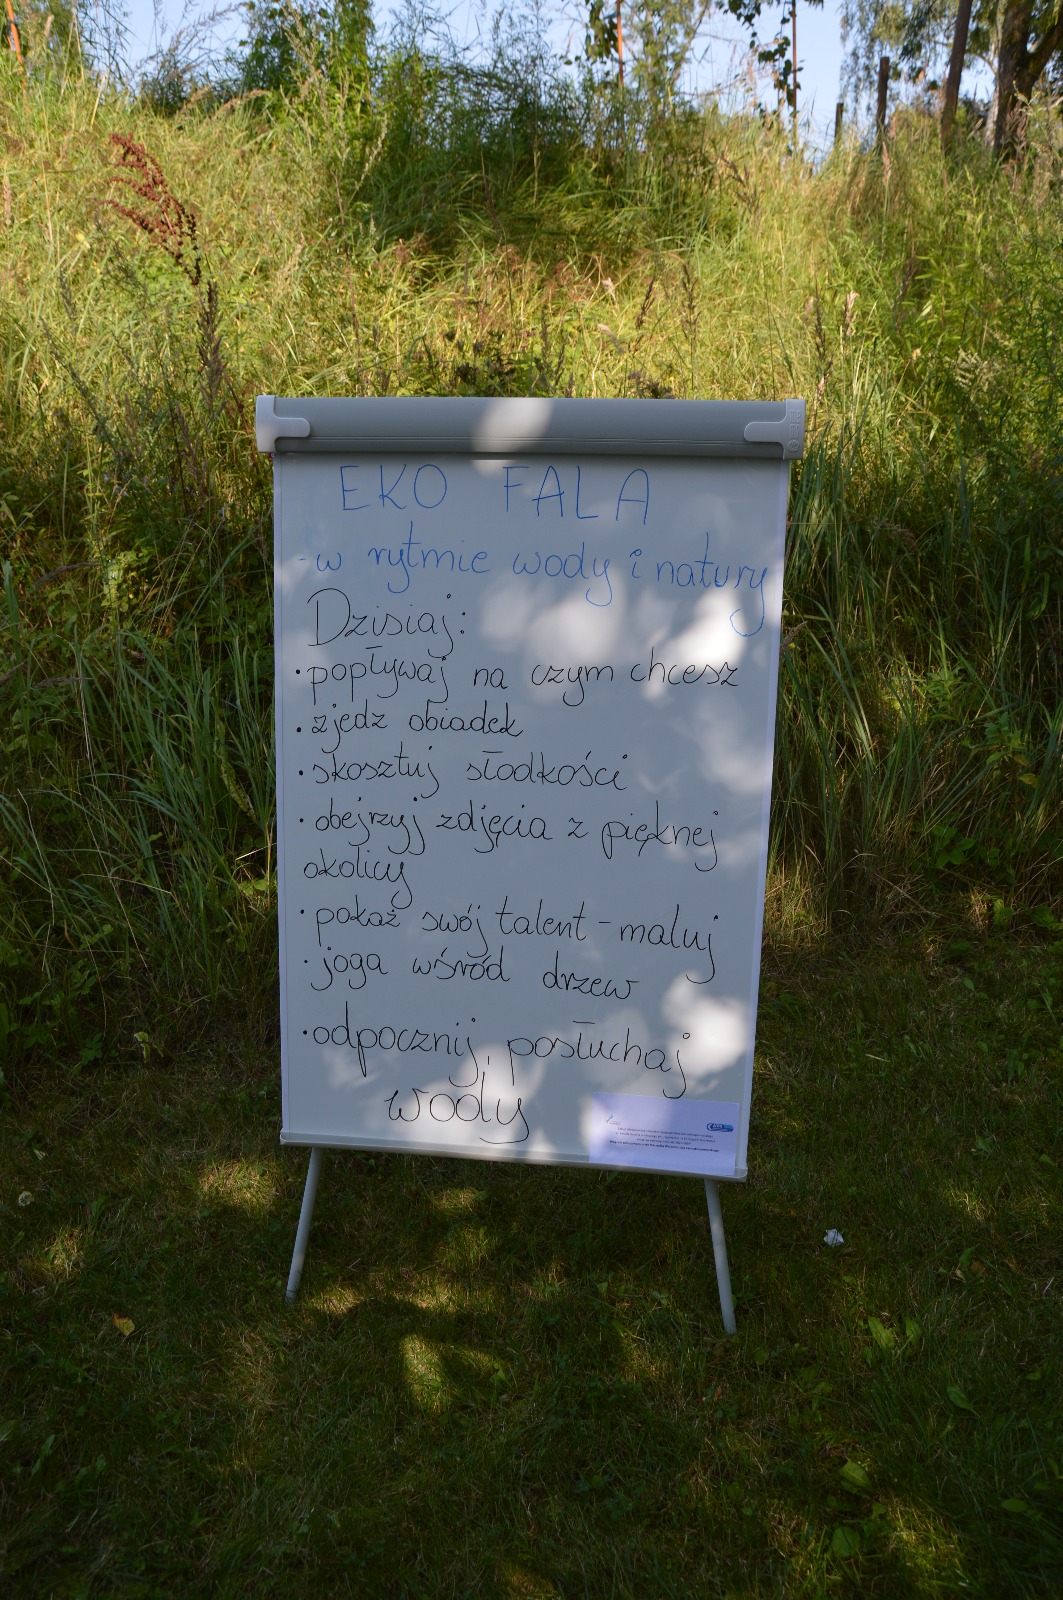 EKO FALA
-w rytmie wody i natury
Dzisiaj:
• popływaj na czym chcesz
• zjedz obiadek
• skosztuj słodkości
• obejrzyj zdjęcia z pięknej
okolicy
• pokaż swój talent - maluj
• joga wśród drzew
• odpocznij, posłuchaj
wody